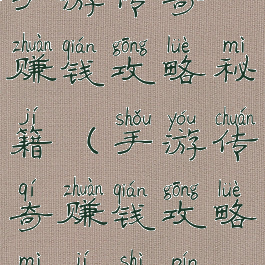 游传奇
zhuàn qián gōng lüè mì
赚钱攻略秘
jí shǒu yóu chuán
籍(手游传
qí zhuàn qián gōng lüè
奇赚钱攻略
mì jí shì pín